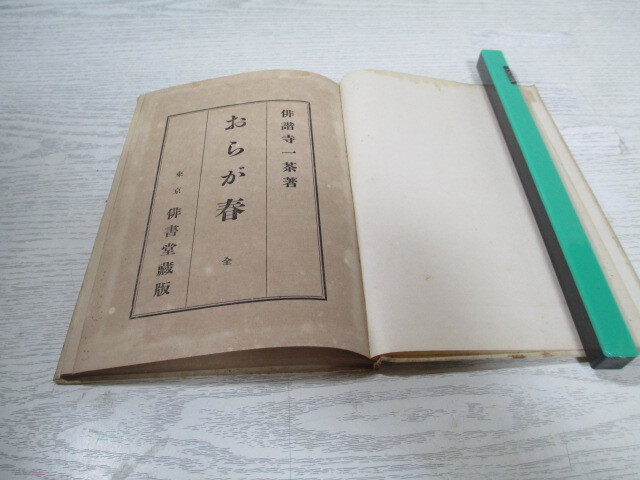 俳諧寺一茶著
おらが春 全
東京 俳書堂藏版